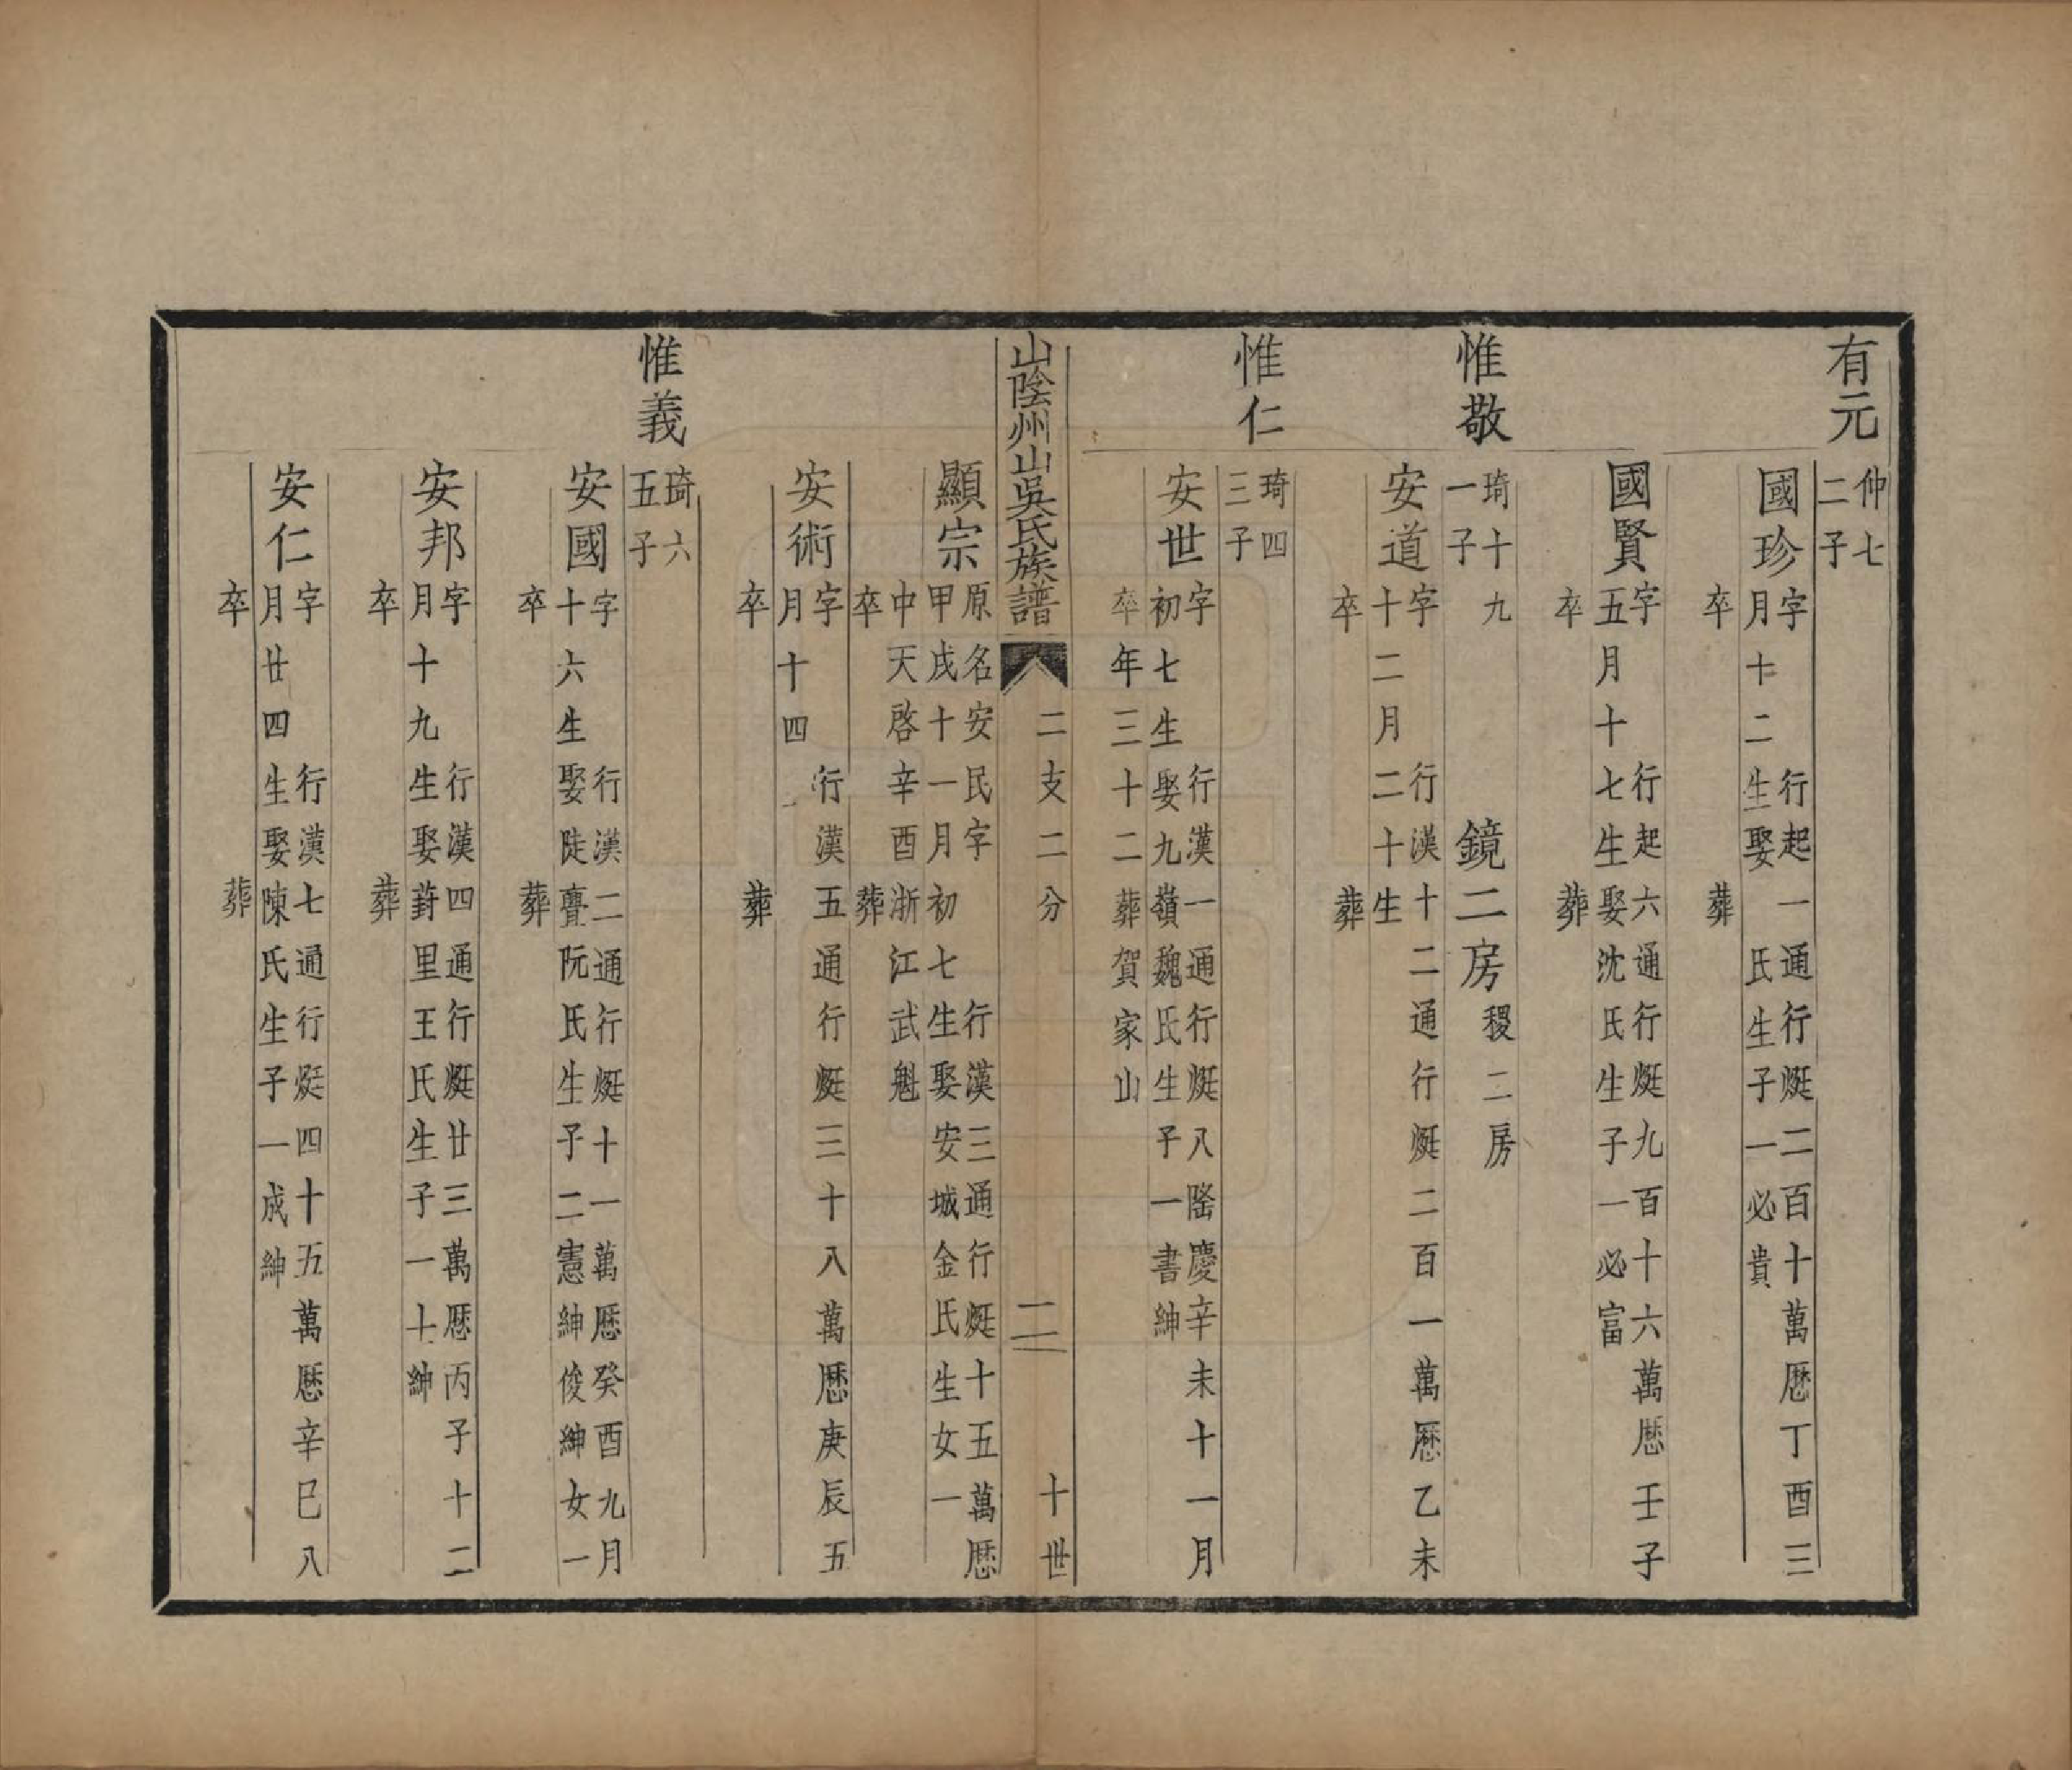 有元
仲七
二子
國珍
字　行起一通行烶二百十萬厯丁酉三
月十二生娶　氏生子一必貴
卒　葬
國賢
字　行起六通行烶九百十六萬厯壬子
五月十七生娶沈氏生子一必富
卒　葬
惟敬
琦十九　鏡二房　稷二房
一子
安道
字　行漢十二通行烶二百一萬厯乙未
十二月二十生
卒　葬
惟仁
琦四
三子
安世
字　行漢一通行烶八隆慶辛未十一月
初七生娶九嶺魏氏生子一書紳
卒年三十二葬賀家山
山陰州山吳氏族譜　二支二分　二　十世
顯宗
原名安民字　行漢三通行烶十五萬厯
甲戌十一月初七生娶安城金氏生女一
中天啓辛酉浙江武魁
卒　葬
安術
字　行漢五通行烶三十八萬厯庚辰五
月十四
卒　葬
惟義
琦六
五子
安國
字　行漢二通行烶十一萬厯癸酉九月
十六生娶陡亹阮氏生子二憲紳俊紳女一
卒　葬
安邦
字　行漢四通行烶廿三萬厯丙子十二
月十九生娶葑里王氏生子一十紳
卒　葬
安仁
字　行漢七通行烶四十五萬厯辛巳八
月廿四生娶陳氏生子一成紳
卒　葬